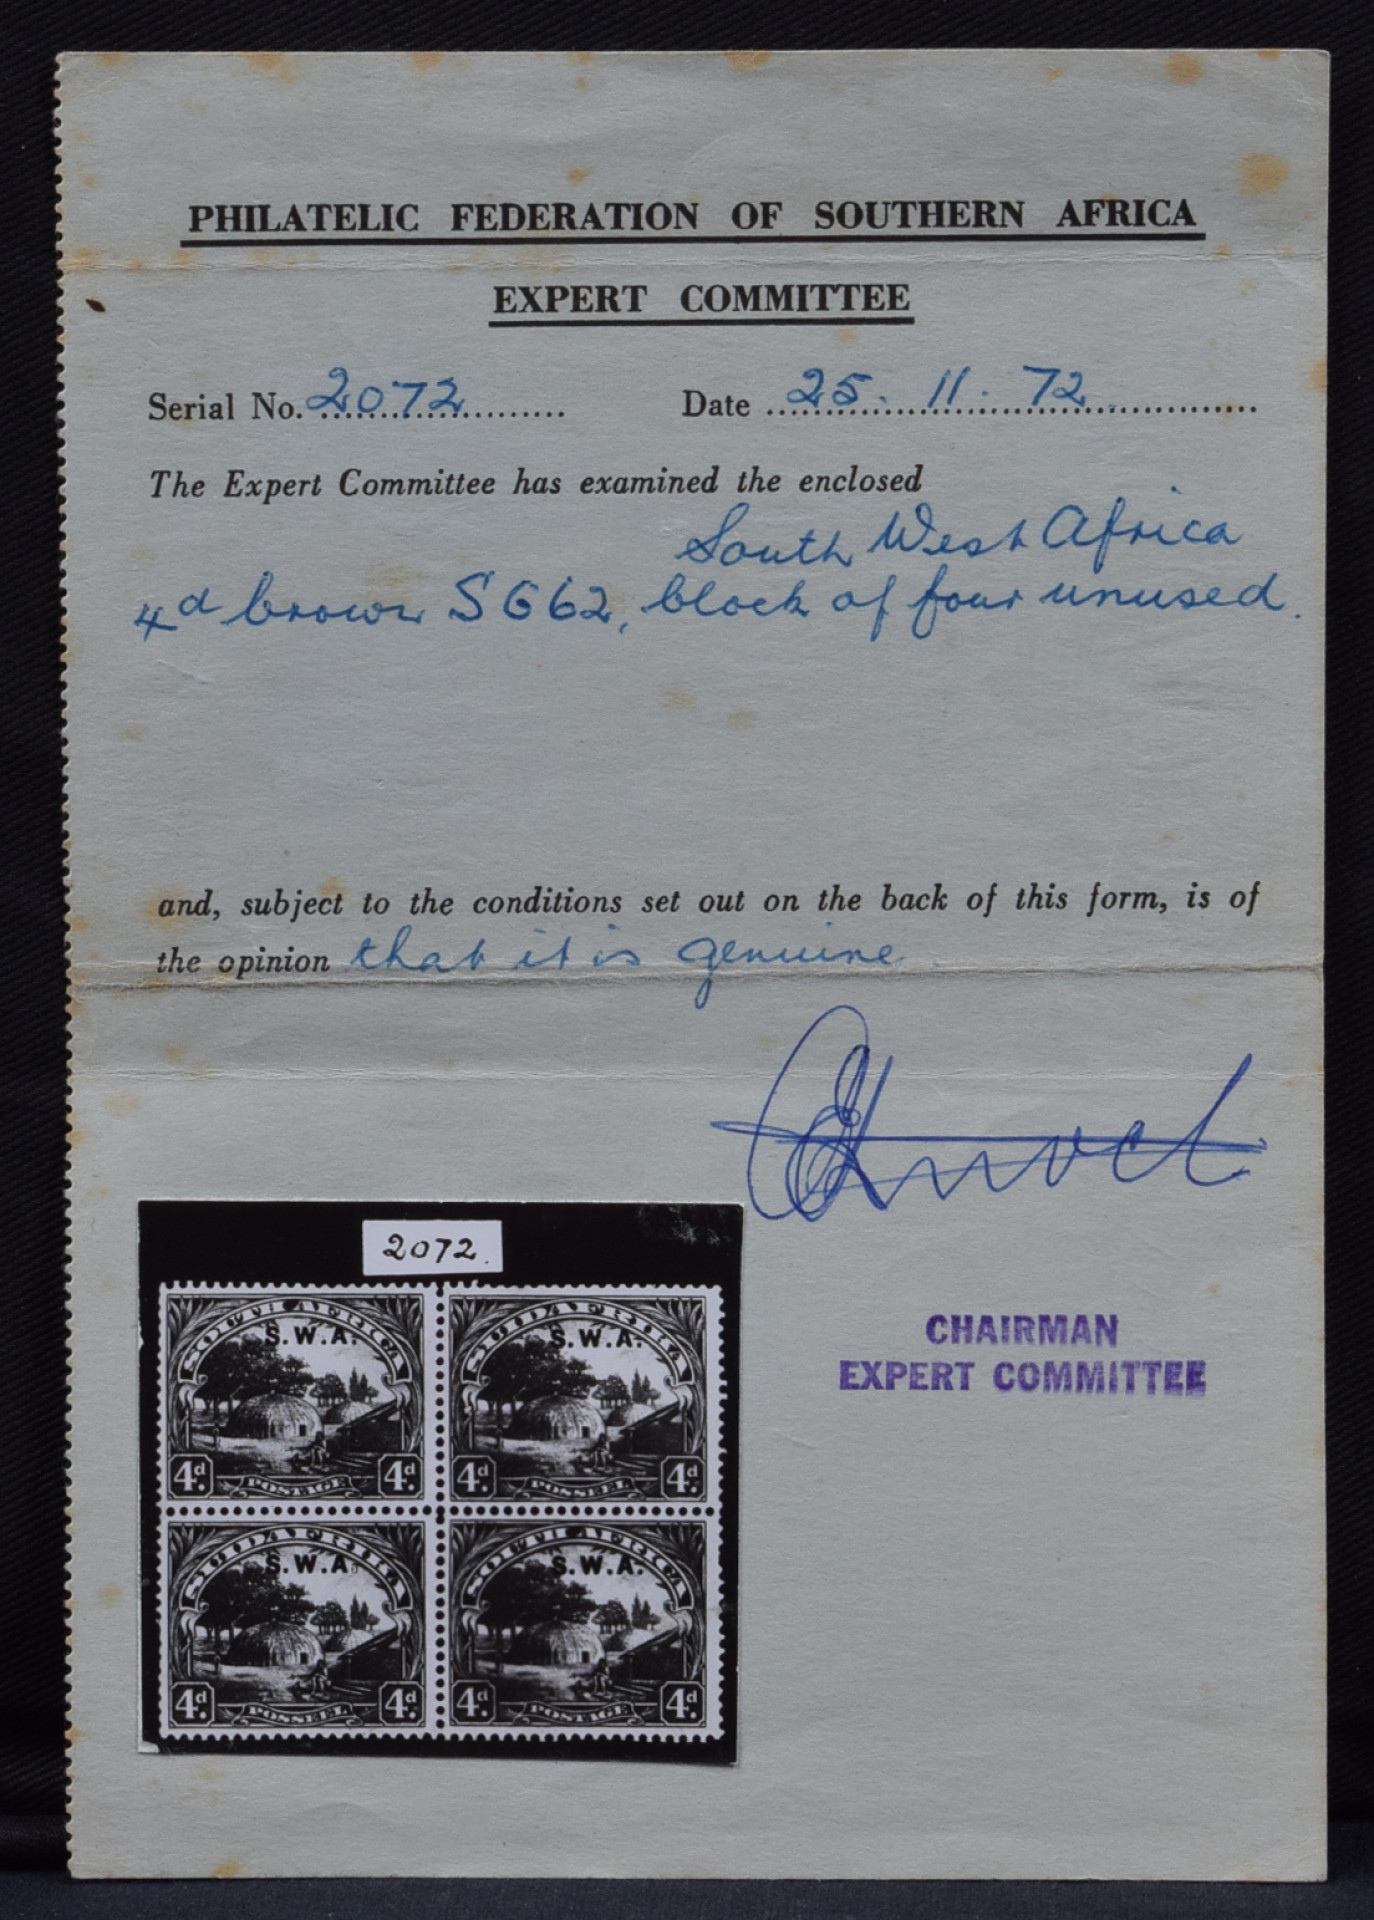 PHILATELIC FEDERATION OF SOUTHERN AFRICA
EXPERT COMMITTEE
Serial No. 2072 Date 25. 11. 72
The Expert Committee has examined the enclosed
South West Africa
4d brown SG62, block of four unused.
and, subject to the conditions set out on the back of this form, is of
the opinion that it is genuine
CHAIRMAN
EXPERT COMMITTEE
2072.
SOUTH AFRICA SUIDAFRIKA
S.W.A. S.W.A.
4d. 4d. 4d. 4d.
POSTAGE POSSEEL
SUIDAFRIKA SOUTH AFRICA
S.W.A. S.W.A.
4d. 4d. 4d. 4d.
POSSEEL POSTAGE